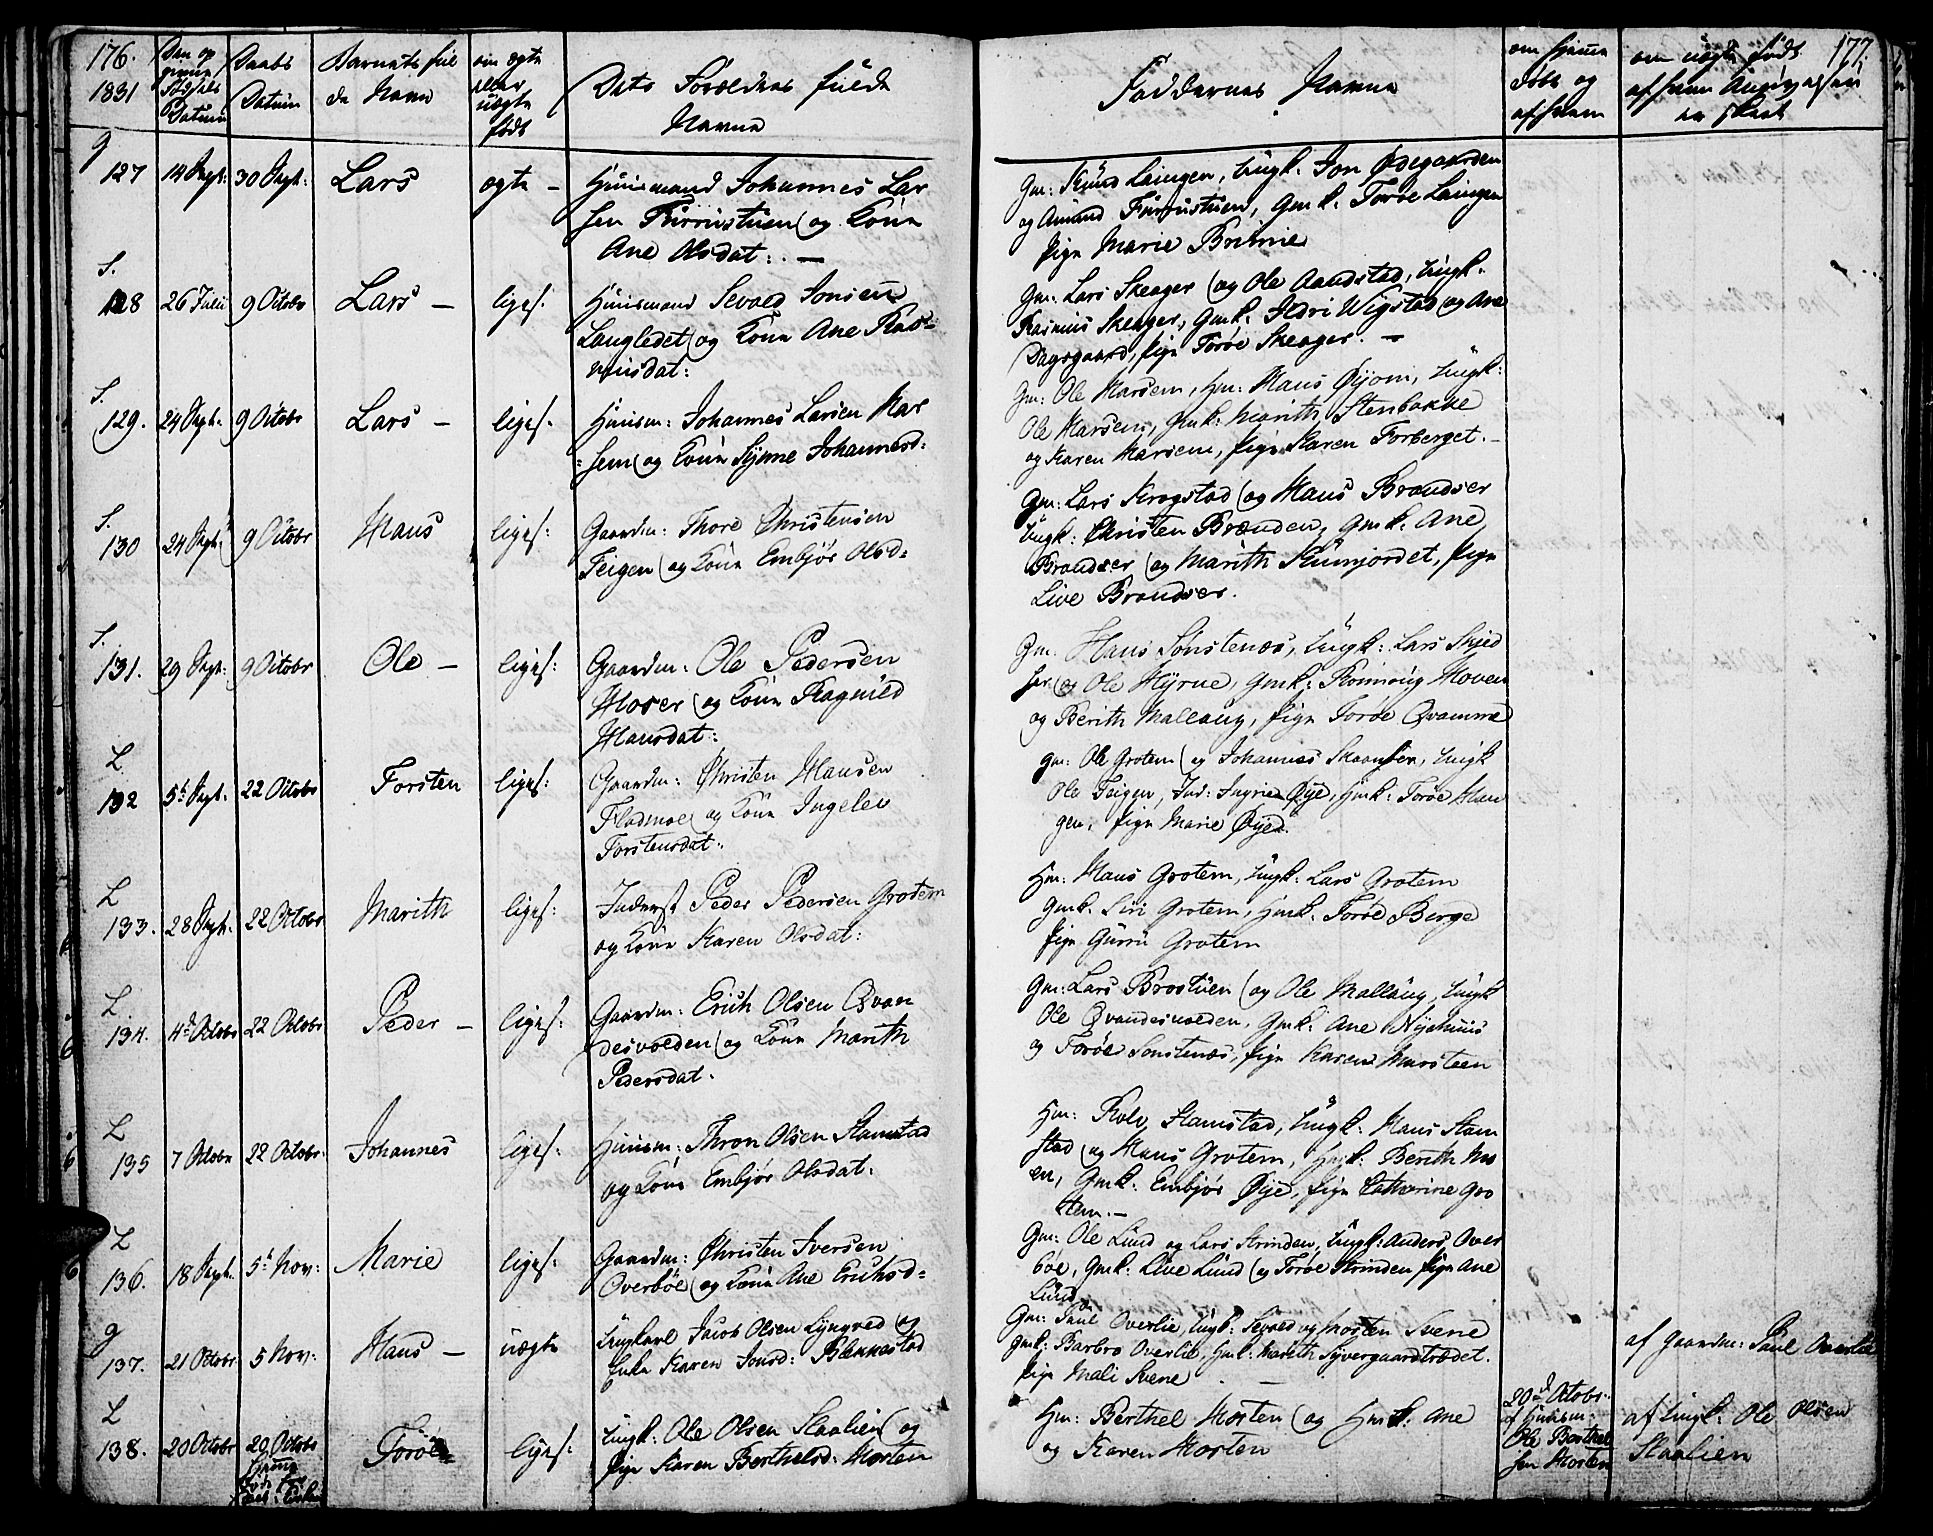 176.
1831
Daabs
Datum
Barnets ful
de Navn
om ægte
eller
uægte
født
Dets Foreldres fulde
Navne
Faddernes Navne
om hjemme
døbt og
af hvem
om uægte født
af hvem Angivelsen
er skeet
177.
g
127
14 Sept:
30 Sept:
Lars
ægte -
Huusmand Johannes Lar
sen Furrustuen (og Kone
Ane Olsdat: -
Gm: Knud Laingen, Ungk. Jon Ødegaarden
og Amund Furrustuen, Gmk. Torøe Laingen
Pige Marie Brimie
S.
128
26 Julii
9 Octobr
Lars -
liges.
Huusmand Sevald Jonsen
Langledet (og Kone Ane Ras-
musdat:
Gm: Lars Skeager (og Ole Aandstad, Ungk.
Rasmus Skeager, Gmk. Ildri Wigstad (og Ane
Dagsgaard, Pige Torøe Skeager. -
S.
129.
24 Sept.
9 Octobr
Lars -
liges.
Huusm: Johannes Larsen Mar
sem (og Kone Synne Johannesd:
Gm: Ole Marsem, Hm: Hans Øyom, Ungk:
Ole Marsem, Gmk: Marith Stenbakke
og Karen Marsem, Pige Karen Forberget. -
S.
130
24 Sept:
9 Octobr
Hans
liges:
Gaardm: Thore Christensen
Teigen (og Kone Embjør Olsd:
Gm: Lars Krogstad (og Hans Brandser
Ungk: Christen Brænden, Gmk. Ane
Brandser (og Marith Kumjordet, Pige
Live Brandser.
S.
131.
29 Sept:
9 Octobr
Ole -
liges:
Gaardm: Ole Pedersen
Hoser (og Kone Ragnild
Hansdat:
Gm: Hans Sønstenæs, Ungk: Lars Skjed
ser (og Ole Kyrue, Gmk: Rønnoug Moven
og Berith Mallaug, Pige Torøe Qvamme
L
132
5t Sept.
22 Octobr
Torsten
liges:
Gaardm: Christen Hansen
Flodmoe (og Kone Ingelev
Torstensdat:
Gm: Ole Grotem (og Johannes Skaanser, Ungk
Ole Teigen, Ind: Ingrie Øye, Hmk: Torøe Hau
gen, Pige Marie Øyen.
L
133.
28 Sept.
22 Octobr
Marith
liges:
Inderst Peder Pedersen Grotem
og Kone Karen Olsdat:
Hm: Hans Grotem, Ungk: Lars Grotem
Gmk. Siri Grotem, Hmk. Torøe Berge
Pige Gurru Grotem
L.
134.
4d Octobr
22 Octobr
Peder -
liges:
Gaardm: Erich Olsen Qvan
desvolden (og Kone Marith
Pedersdat.
Gm: Lars Brostuen (og Ole Mallaug, Ungk
Ole Qvandesvolden, Gmk: Ane Nyehuus
og Torøe Sonstenæs, Pige Karen Marsteen
L
135
7 Octobr
22 Octobr.
Johannes
liges:
Huusm: Thron Olsen Stamstad
og Kone Embjør Olsdat:
Hm: Rolv Stamstad, Ungk: Hans Stam
stad (og Hans Grotem, Hmk: Berith Mo
en, Gmk: Embjør Øye, Pige Catharine Gro
tem. -
L
136.
18 Sept.
5t Nov:
Marie
liges:
Gaardm: Christen Iversen
Overbøe (og Kone Ane Erichsd:
Gm: Ole Lund og Lars Strinden, Ungk: Anders Over
bøe, Gmk: Live Lund (og Torøe Strinden Pige Ane
Lund
g
137.
21 Octobr.
5 Nov:
Hans -
uægte
Ungkarl Jacob Olsen Lyngved (og
Enke Karen Jonsd: Blekkestad
Gm: Paul Overlie, Ungk: Sevald og Morten Svene
Gmk: Barbro Overlie, Hmk: Marith Syvergaardtrædet.
Pige Mali Svene
af Gaardm: Paul Overlie
L
138.
20 Octobr
20 Octobr
Torøe
liges:
Ungk: Ole Olsen Slaalien (og
Pige Karen Berthelsd: Morten
Hm: Berthel Morten (og Hmk: Ane
og Karen Morten
20d Octobr.
af Huusm:
Ole Berthel
sen Morten
af Ungk: Ole Olsen
Slaalien